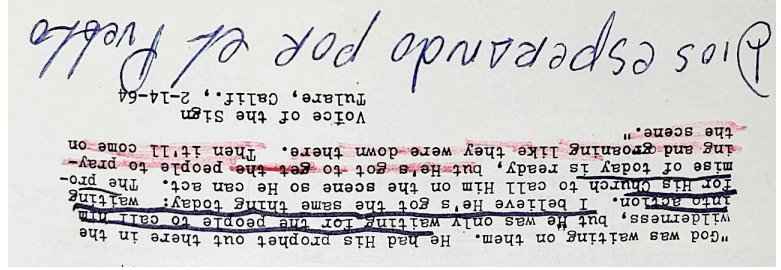 "God was waiting on them. He had His prophet out there in the
wilderness, but He was only waiting for the people to call him
into action. I believe He's got the same thing today: waiting
for His Church to call Him on the scene so He can act. The pro-
mise of today is ready, but He's got to get the people to pray-
ing and groening like they were down there. Then it'll come on
the scene."
Voice of the Sign
Tulare, Calif., 2-14-64
Dios esperando por el Pueblo